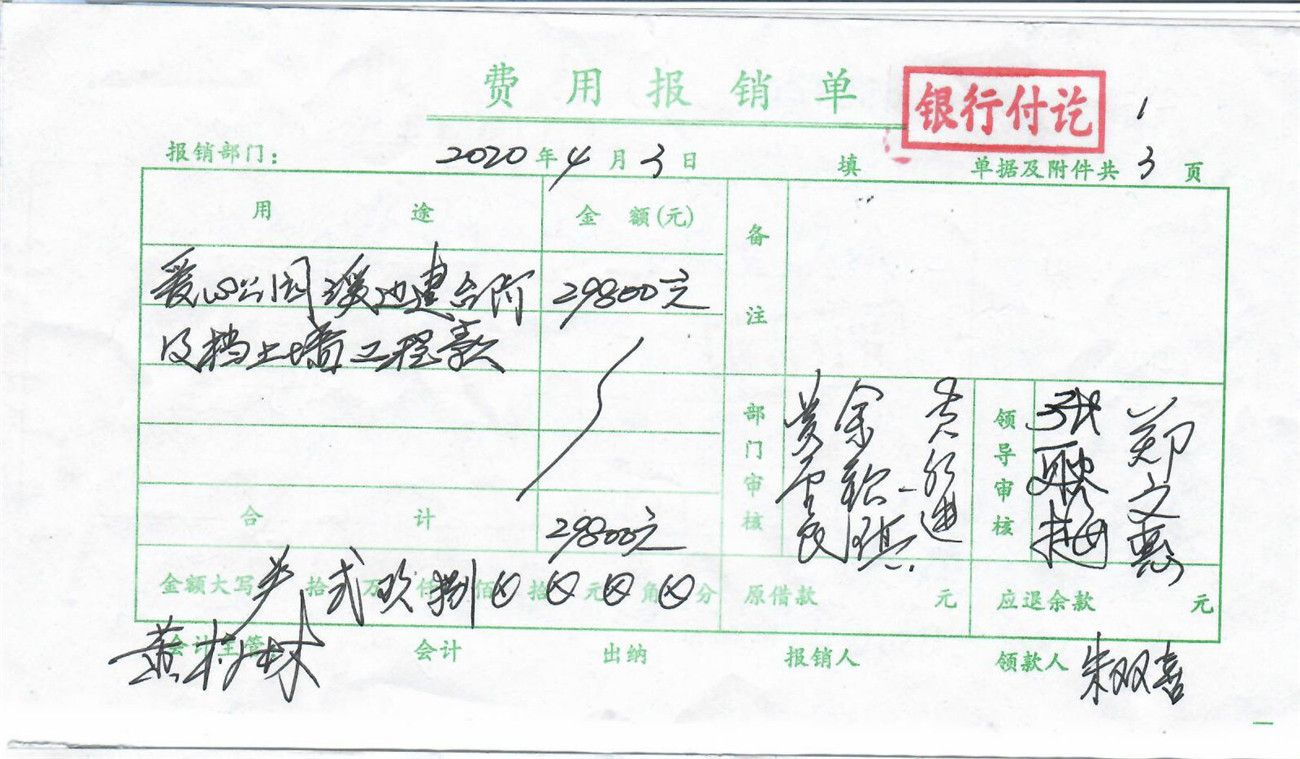 费用报销单
银行付讫
1
报销部门： 2020年4月3日 填 单据及附件共3页
用途 金额(元) 备注
爱心公园 建台阶 29800元
及挡土墙工程款
部门审核 领导审核 郑文
合计 29800元
金额大写 拾式万玖仟捌佰⊗拾⊗元⊗角⊗分 原借款 元 应退余款 元
会计主管 会计 出纳 报销人 领款人 朱双喜